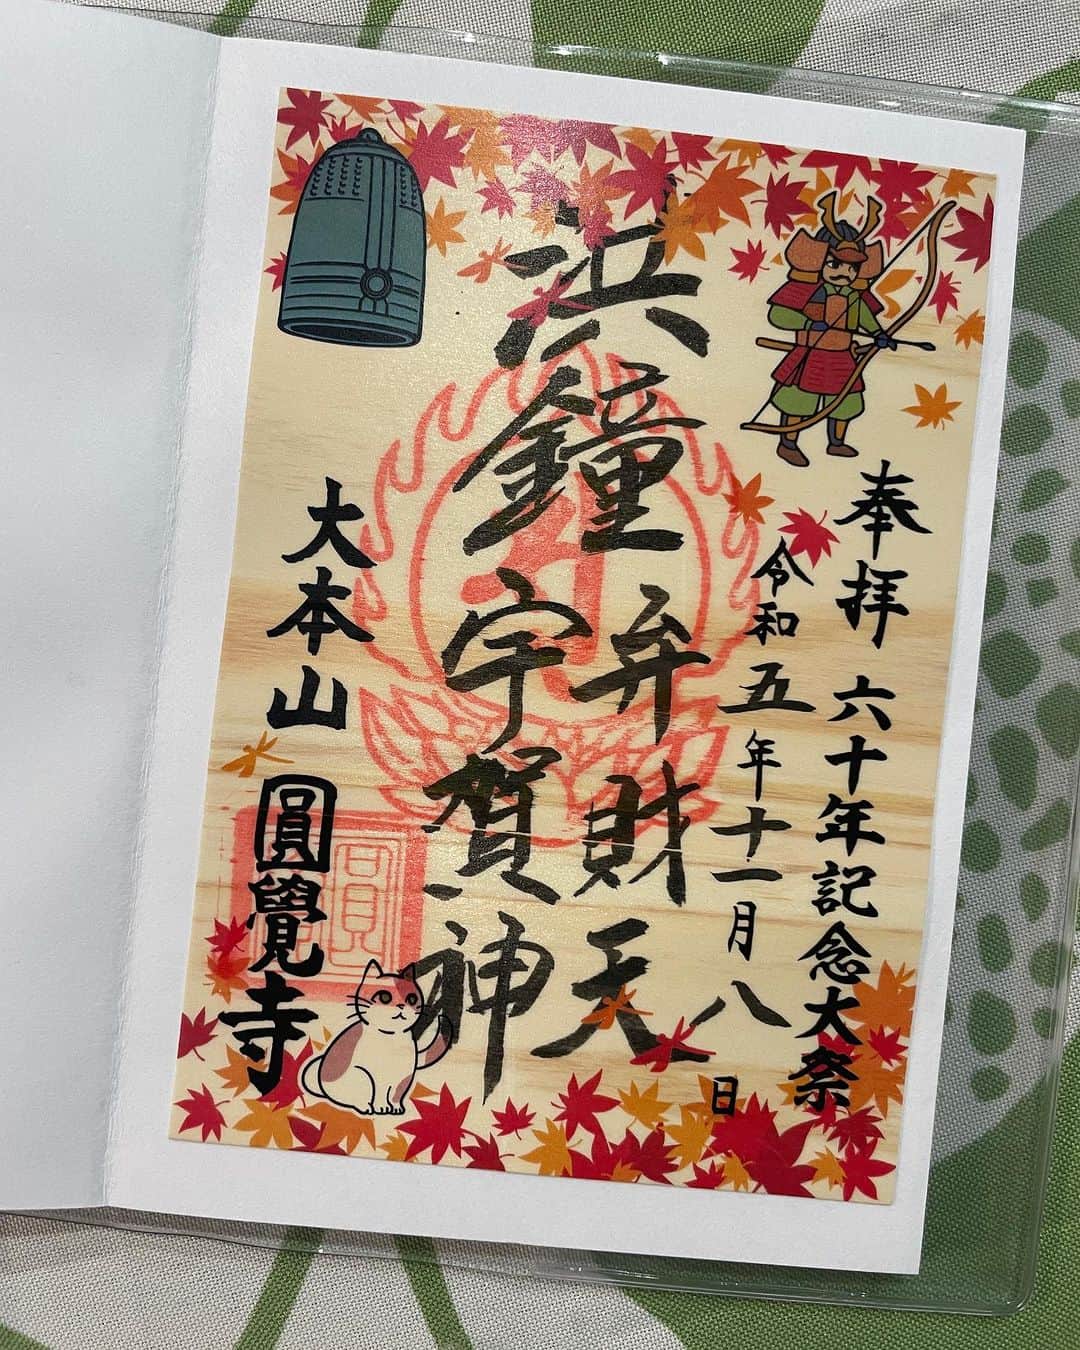 奉拝 六十年記念大祭
令和五年十一月八日
洪鐘 弁財天
宇賀神
大本山 圓覺寺